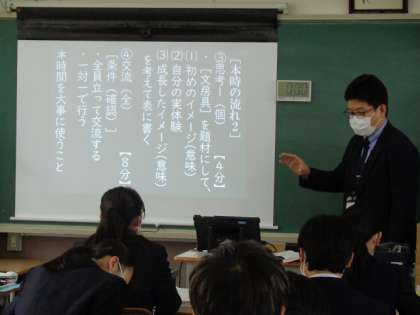 ［本時の流れ２］
③思考Ⅰ（個）　【４分】
・［文房具］を題材にして、
⑴ 初めのイメージ（意味）
⑵ 自分の実体験
⑶ 成長したイメージ（意味）
を考えて表に書く
④交流（全）　【８分】
［条件（確認）］
・全員立って交流する
・一対一で行う
本時間を大事に使うこと